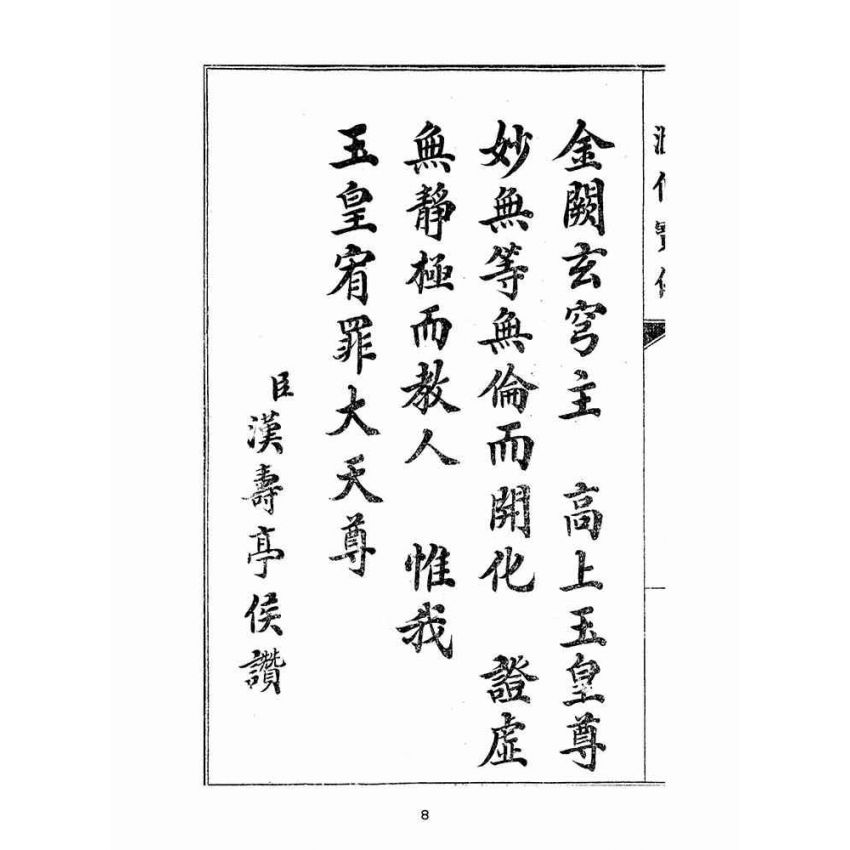 金闕玄穹主　高上玉皇尊
妙無等無倫而開化　證虛
無靜極而教人　惟我
玉皇宥罪大天尊
臣漢壽亭侯讚
8